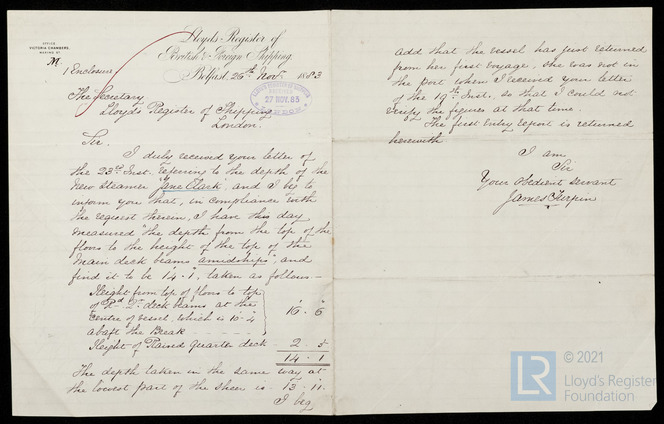 Lloyd's Register of
British & Foreign Shipping.
OFFICE,
VICTORIA CHAMBERS,
Belfast, 26th Novr 1883
1 Enclosure
The Secretary
Lloyd's Register of Shipping
London.
27 NOV. 85
LONDON
Sir,
I duly received your letter of
the 23rd Inst. referring to the depth of the
new Steamer "Jane Clark", and I beg to
inform you that, in compliance with
the request therein, I have this day
measured "the depth from the top of the
floors to the height of the top of the
main deck beams amidships", and
find it to be 14.1, taken as follows -
Height from top of floors to top
of deck beams at the
centre of vessel, which is
abaft the Break
16. 6
Height of Raised Quarter deck 2. 5
14. 1
The depth taken in the same way at
the lowest part of the sheer is 13. 11.
I beg
add that the vessel has just returned
from her first voyage, she was not in
the port when I received your letter
of the 19th Inst., so that I could not
verify the figures at that time.
The first Entry Report is returned
herewith
I am
Sir
Your Obedient Servant
James Turpin
© 2021
LR
Lloyd's Register
Foundation